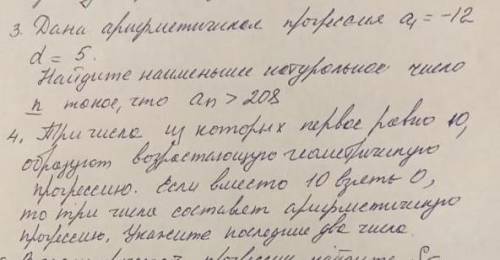 3. Дана арифметическая прогрессия a₁ = -12
d = 5.
Найдите наименьшее натуральное число
n такое, что an > 208
4. Три числа из которых первое равно 10,
образуют возрастающую геометрическую
прогрессию. Если вместо 10 взять 0,
то три числа составят арифметическую
прогрессию. Укажите последние два числа.
прогрессии найдите